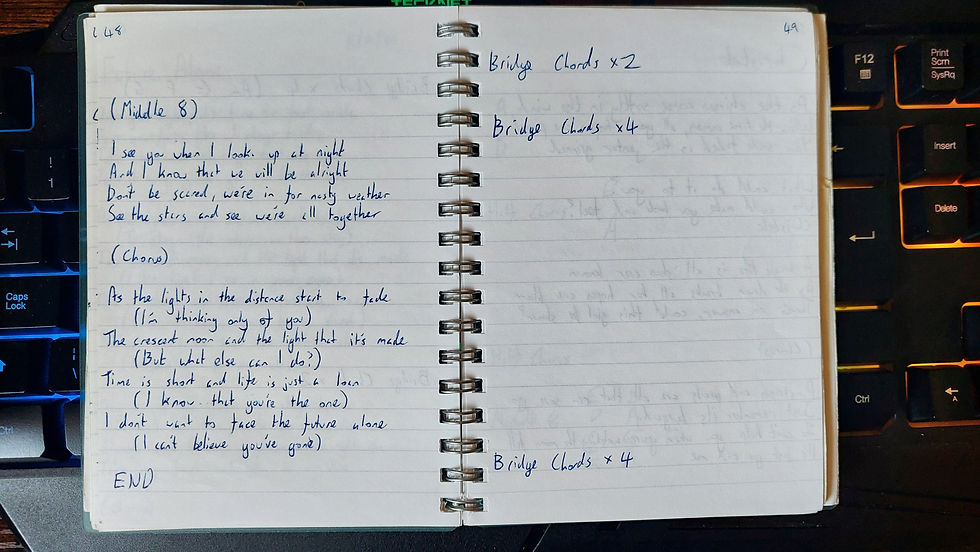 TECKNET
48
(Middle 8)
I see you when I look up at night
And I know that we will be alright
Don't be scared, we're in for nasty weather
See the stars and see we're all together
(Chorus)
As the lights in the distance start to fade
(I'm thinking only of you)
The crescent moon and the light that it's made
(But what else can I do?)
Time is short and life is just a loan
(I know that you're the one)
I don't want to face the future alone
(I can't believe you've gone)
END
49
Bridge Chords x2
Bridge Chords x4
Bridge Chords x4
!
1
Caps
Lock
Ctrl
F12
Print
Scrn
SysRq
Insert
Delete
Ctrl
A